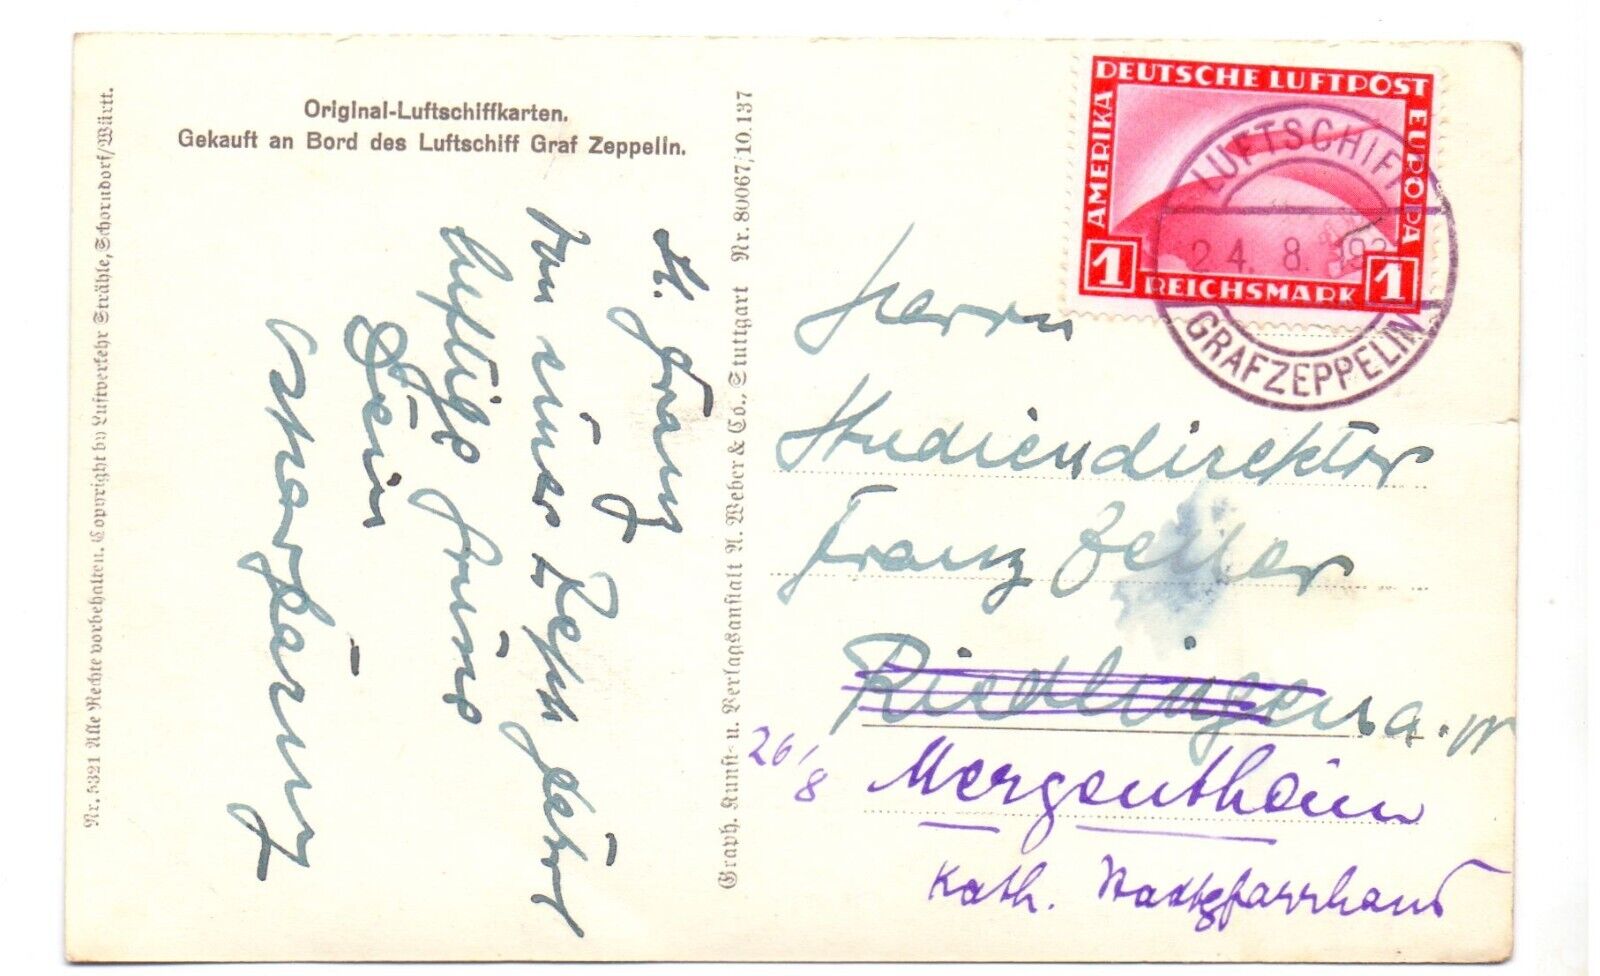 Original-Luftschiffkarten.
Gekauft an Bord des Luftschiff Graf Zeppelin.
Nr. 5321 Alle Rechte vorbehalten. Copyright by Luftverkehr Strähle, Schorndorf/Württ.
Graph. Kunst- u. Verlagsanstalt A. Weber & Co., Stuttgart Nr. 80067/10.137
Franz
von einer
Grüße
Dein
DEUTSCHE LUFTPOST
AMERIKA
EUROPA
1 REICHSMARK 1
LUFTSCHIFF
24. 8. 193
GRAF ZEPPELIN
Herrn
Studiendirektor
Franz Zeller
Riedlingen a.
26/8
Mergentheim
Kath. Stadtpfarrhaus